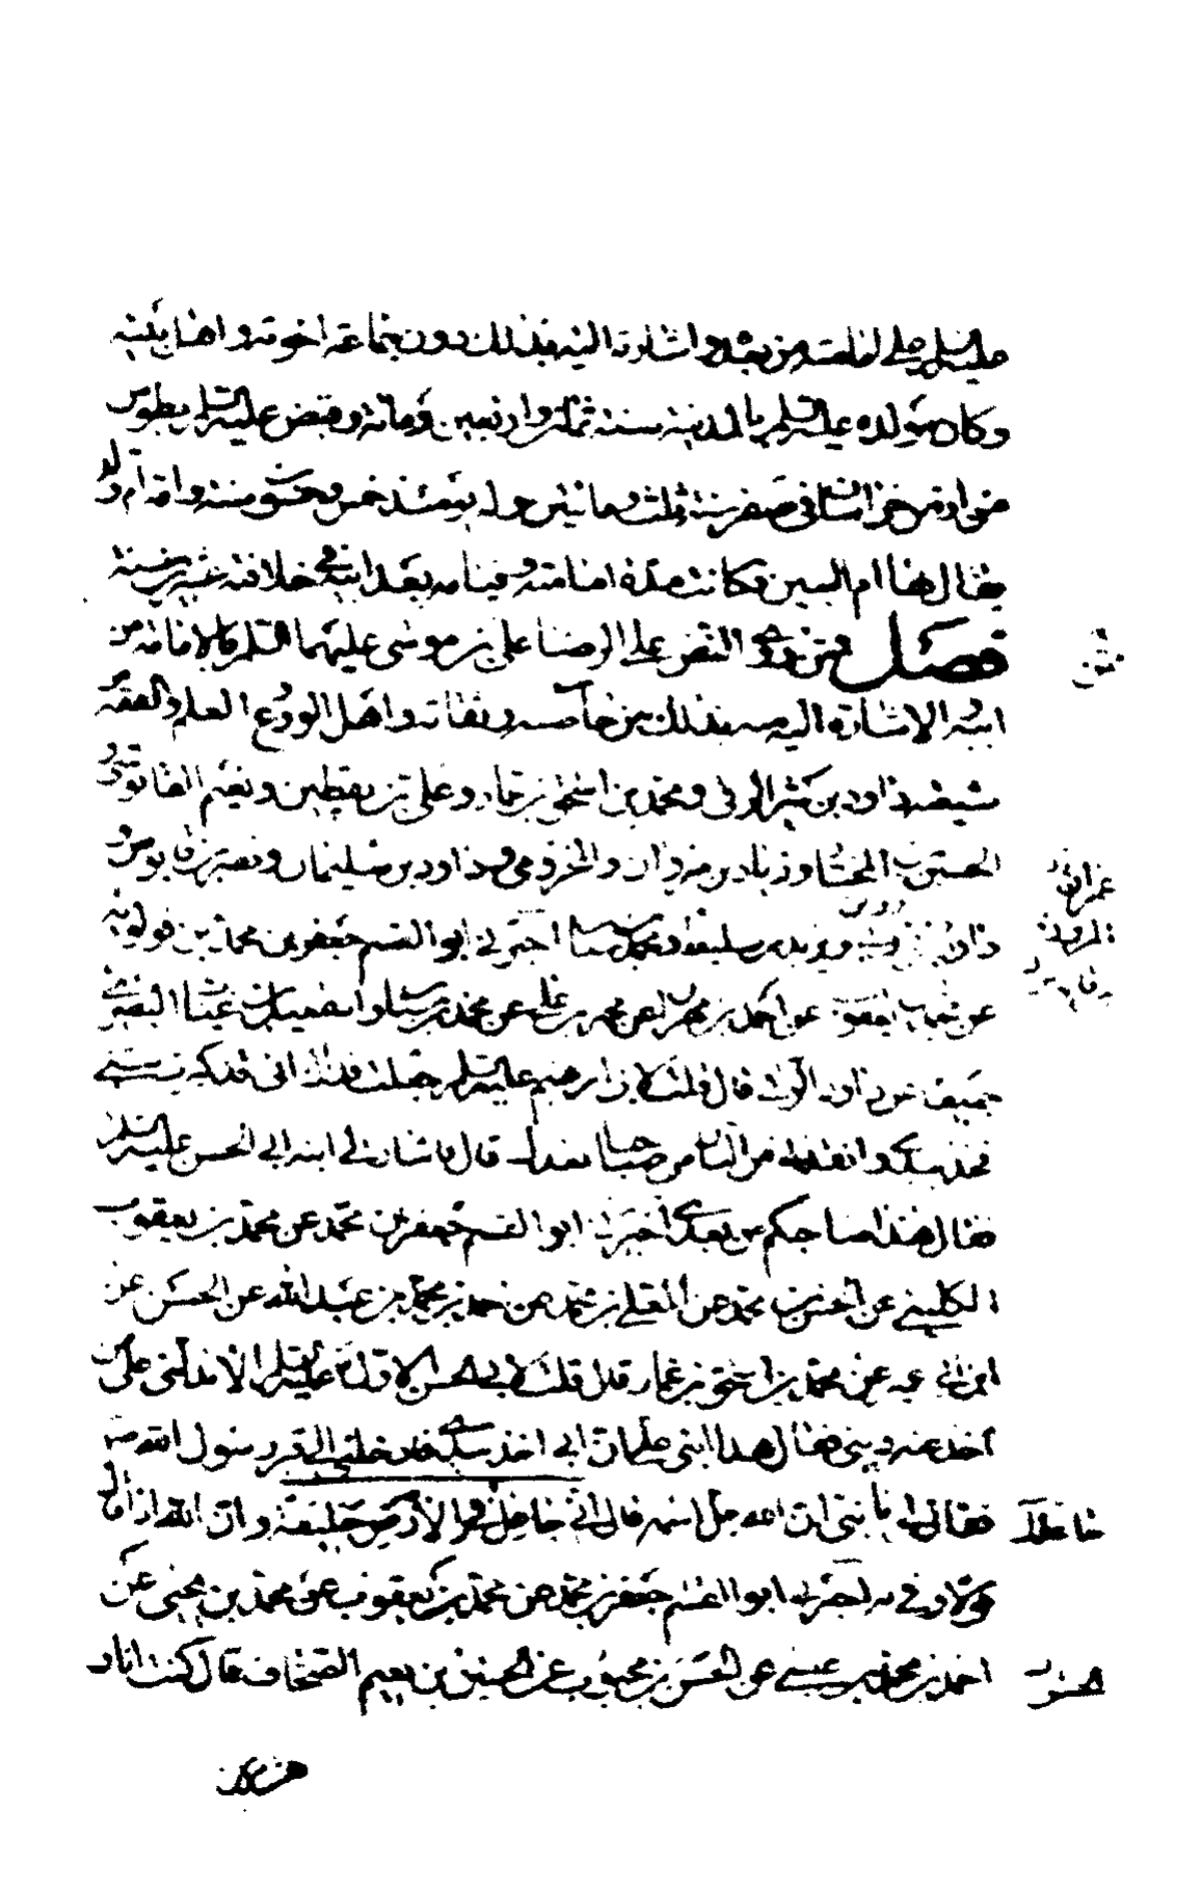 عليه السلم على امامته من بعده واشارته اليه بذلك دون جماعة اخوته واهل بيته
وكان مولده عليه السلم بالمدينة سنة ثمان واربعين ومائة وقبض عليه السلم بطوس
من ارض خراسان في صفر سنة ثلث ومائتين وله يومئذ خمس وخمسون سنة وامه ام ولد
يقال لها ام البنين وكانت مدة امامته وقيامه بعد ابيه في خلافته عشرين سنة
فصل فمن روى النص على الرضا علي بن موسى عليهما السلم بالامامة من
ابيه والاشارة اليه منه بذلك من خاصته وثقاته واهل الورع والعلم والفقه
من شيعته داود بن كثير الرقي ومحمد بن اسحق بن عمار وعلي بن يقطين ونعيم القابوسي
الحسين بن المختار وزياد بن مروان والمخزومي وداود بن سليمان ونصر بن قابوس و
داود بن زربي ويزيد بن سليط ومحمد بن سنان اخبرني ابو القسم جعفر بن محمد بن قولويه
عن محمد بن يعقوب عن احمد بن مهران عن محمد بن علي عن محمد بن سنان واسمعيل بن غياث القصري
جميعا عن داود الرقي قال قلت لابي ابرهيم عليه السلم جعلت فداك اني قد كبر سني
فخذ بيدي وانقذني من النار من صاحبنا بعدك قال فاشار الى ابنه ابي الحسن عليه السلم
فقال هذا صاحبكم من بعدي اخبرني ابو القسم جعفر بن محمد عن محمد بن يعقوب
الكليني عن الحسين بن محمد عن المعلى بن محمد عن احمد بن محمد بن عبد الله عن الحسن عن
ابن ابي عمير عن محمد بن اسحق بن عمار قال قلت لابي الحسن الاول عليه السلم الا تدلني على من
آخذ عنه ديني فقال هذا ابني علي ان ابي اخذ بيدي فادخلني الى قبر رسول الله ص
فقال لي يا بني ان الله جل اسمه قال اني جاعل في الارض خليفة وان الله اذا قال
قولا وفى به اخبرني ابو القسم جعفر بن محمد عن محمد بن يعقوب عن محمد بن يحيى عن
احمد بن محمد بن عيسى عن الحسن بن محبوب عن الحسين بن نعيم الصحاف قال كنت انا و